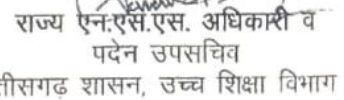 राज्य एन.एस.एस. अधिकारी व
पदेन उपसचिव
तीसगढ़ शासन, उच्च शिक्षा विभाग